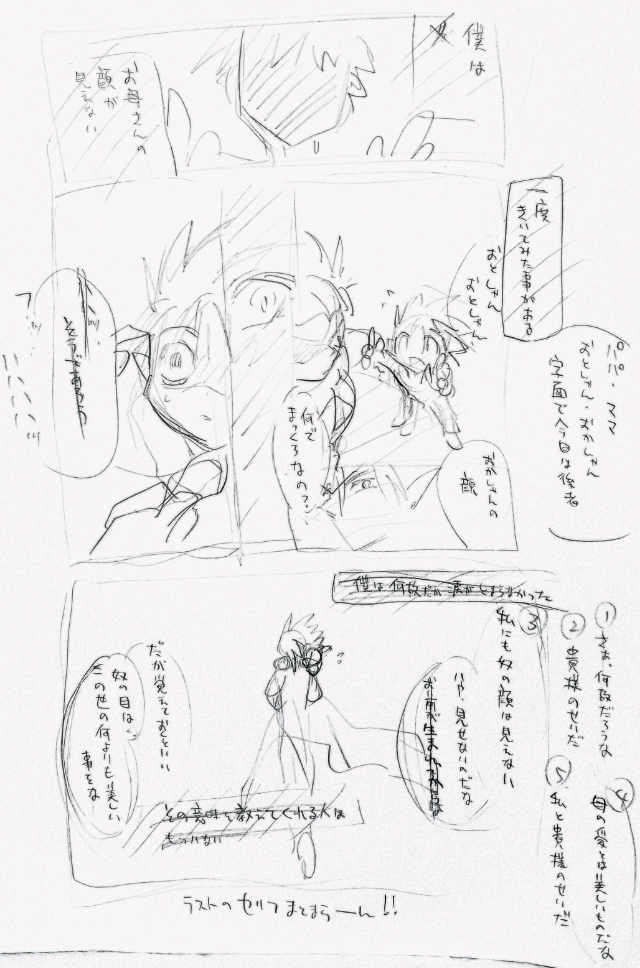 僕は
お母さんの
顔が
見えない
一度
きいてみた事がある
おとしゃん
おとしゃん
パパ・ママ
おとしゃん・おかしゃん
字面で今日は後者
おかしゃんの
顔
何で
まっくろなの?
そうであろう
僕は何故だか涙がとまらなかった
①さぁ、何故だろうな
②貴様のせいだ
③私にも奴の顔は見えない
④母の愛とは美しいものだな
⑤私と貴様のせいだ
いや、見せないのだな
お前が生まれてからは
だが覚えておくといい
奴の目は、
この世の何よりも美しい
事をな
その意味を教えてくれる人は
もういない
ラストのセリフまとまらーん!!